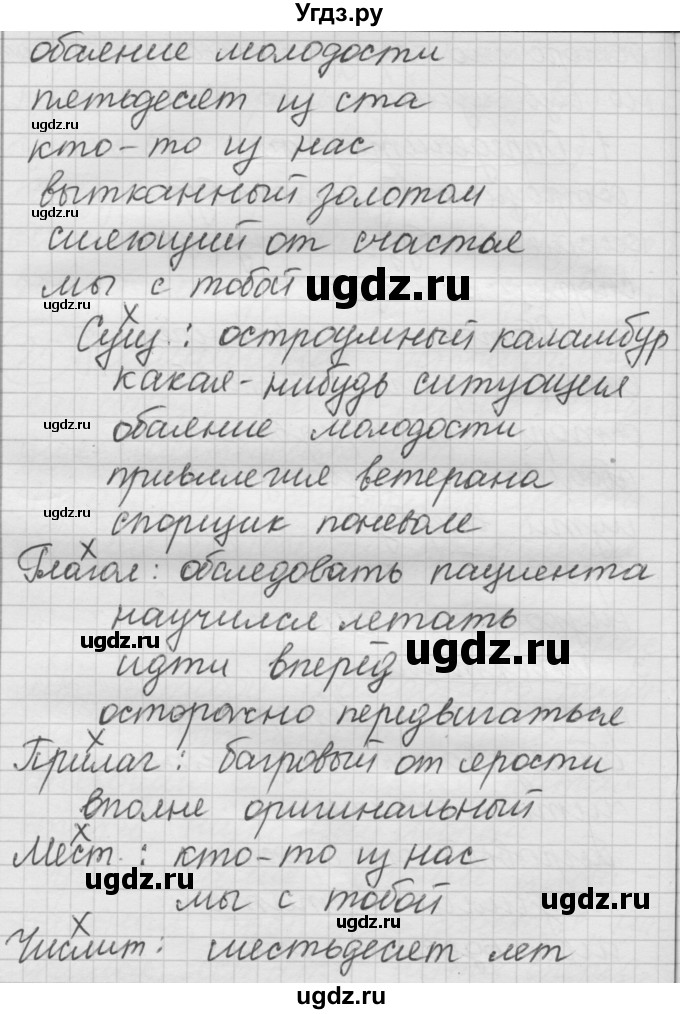 Угдз.ру
обаяние молодости
пятьдесят из ста
ugdz.ru
кто-то из нас
вытканный золотом
ugdz.ru
сияющий от счастья
мы с тобой ugdz.ru
х
Сущ.: остроумный каламбур
какая-нибудь ситуация
ugdz.ru обаяние молодости
привилегия ветерана
ugdz.ru спорщик поневоле
х
Глагол: обследовать пациента
научился летать
ugdz.ru идти вперёд ugdz.ru
осторожно передвигаться
х
Прилаг: багровый от ярости
вполне оригинальный
х
Мест.: кто-то из нас
ugdz.ru мы с тобой ugdz.ru
ugdz.ru
х
Числит: шестьдесят лет
ugdz.ru